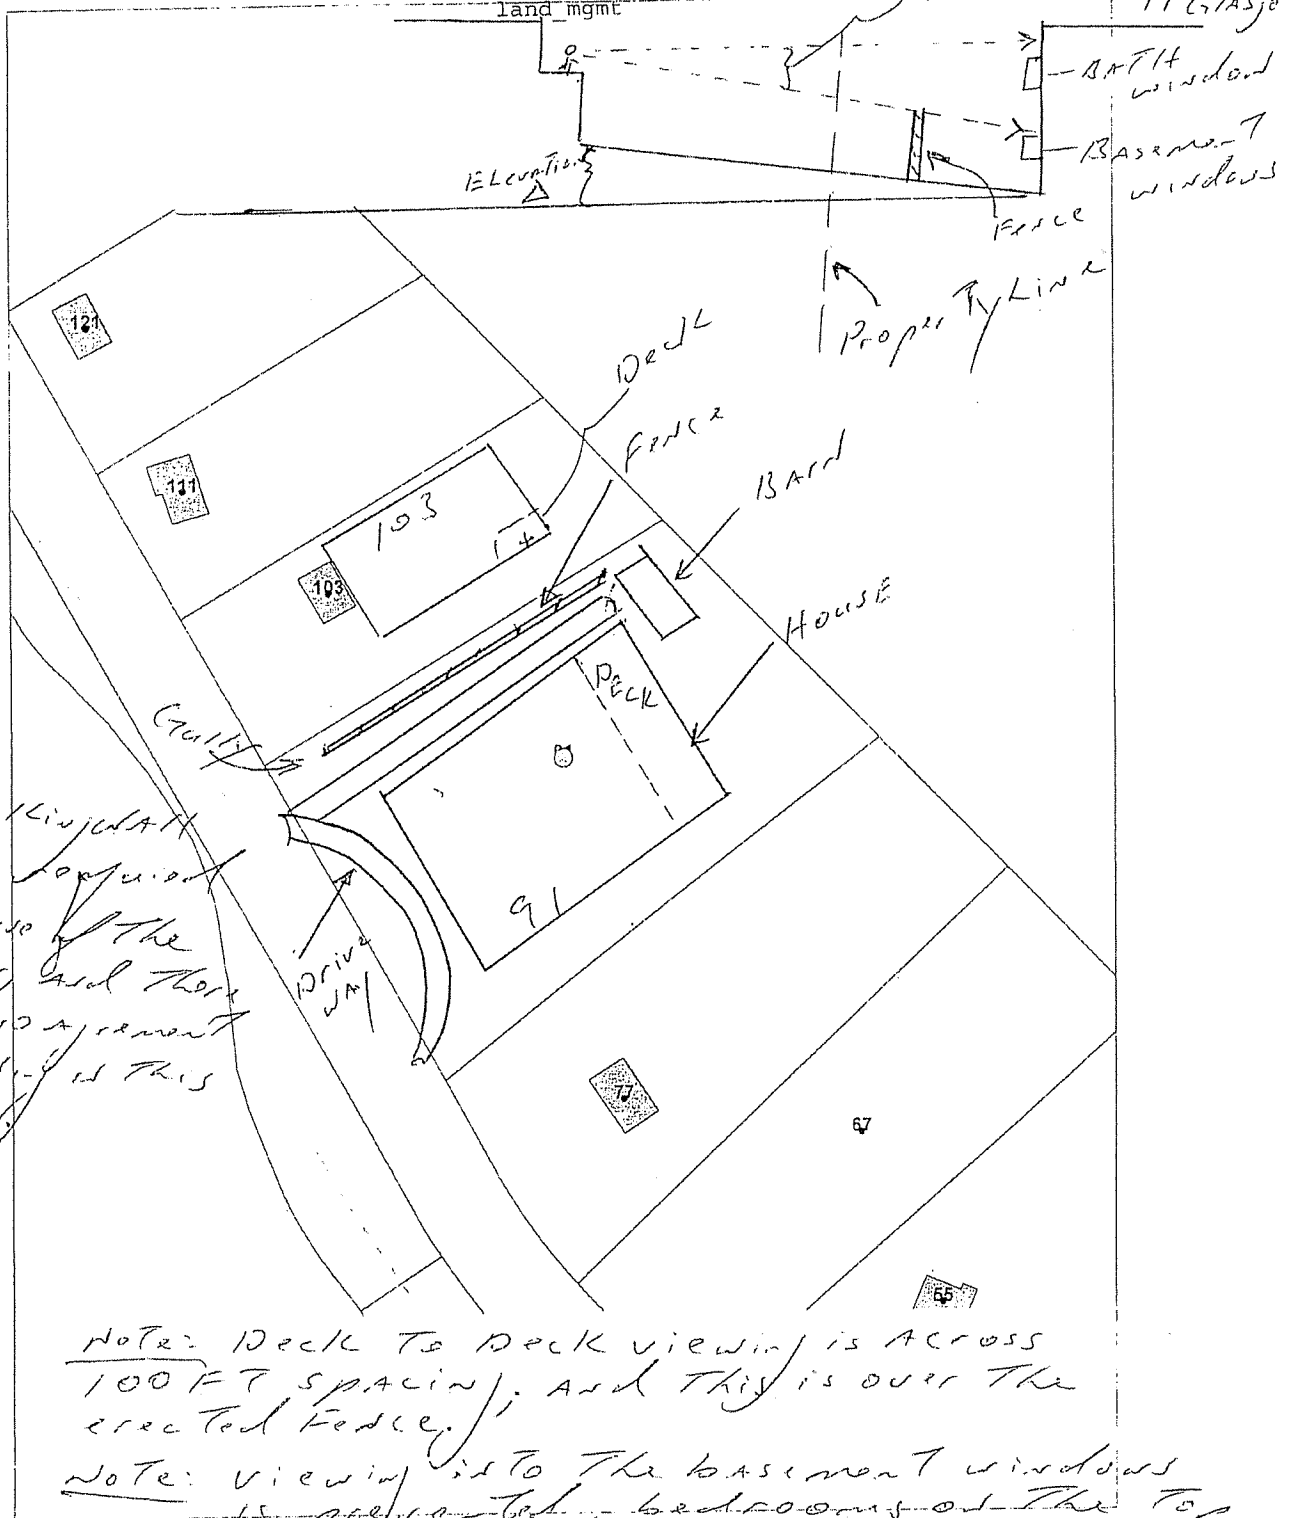 land mgmt
BATH
window
Basement
windows
Elevation
Fence
Property Line
Deck
Fence
BARN
HOUSE
121
111
103
103
DECK
Gully
91
Drive
way
of The
And There
Agrement
is This
77
67
55
Note: Deck To Deck viewing is Across
100 FT spacing; And This is over The
erected Fence.
Note: viewing into The basement windows
is prevented. bedrooms on The Top